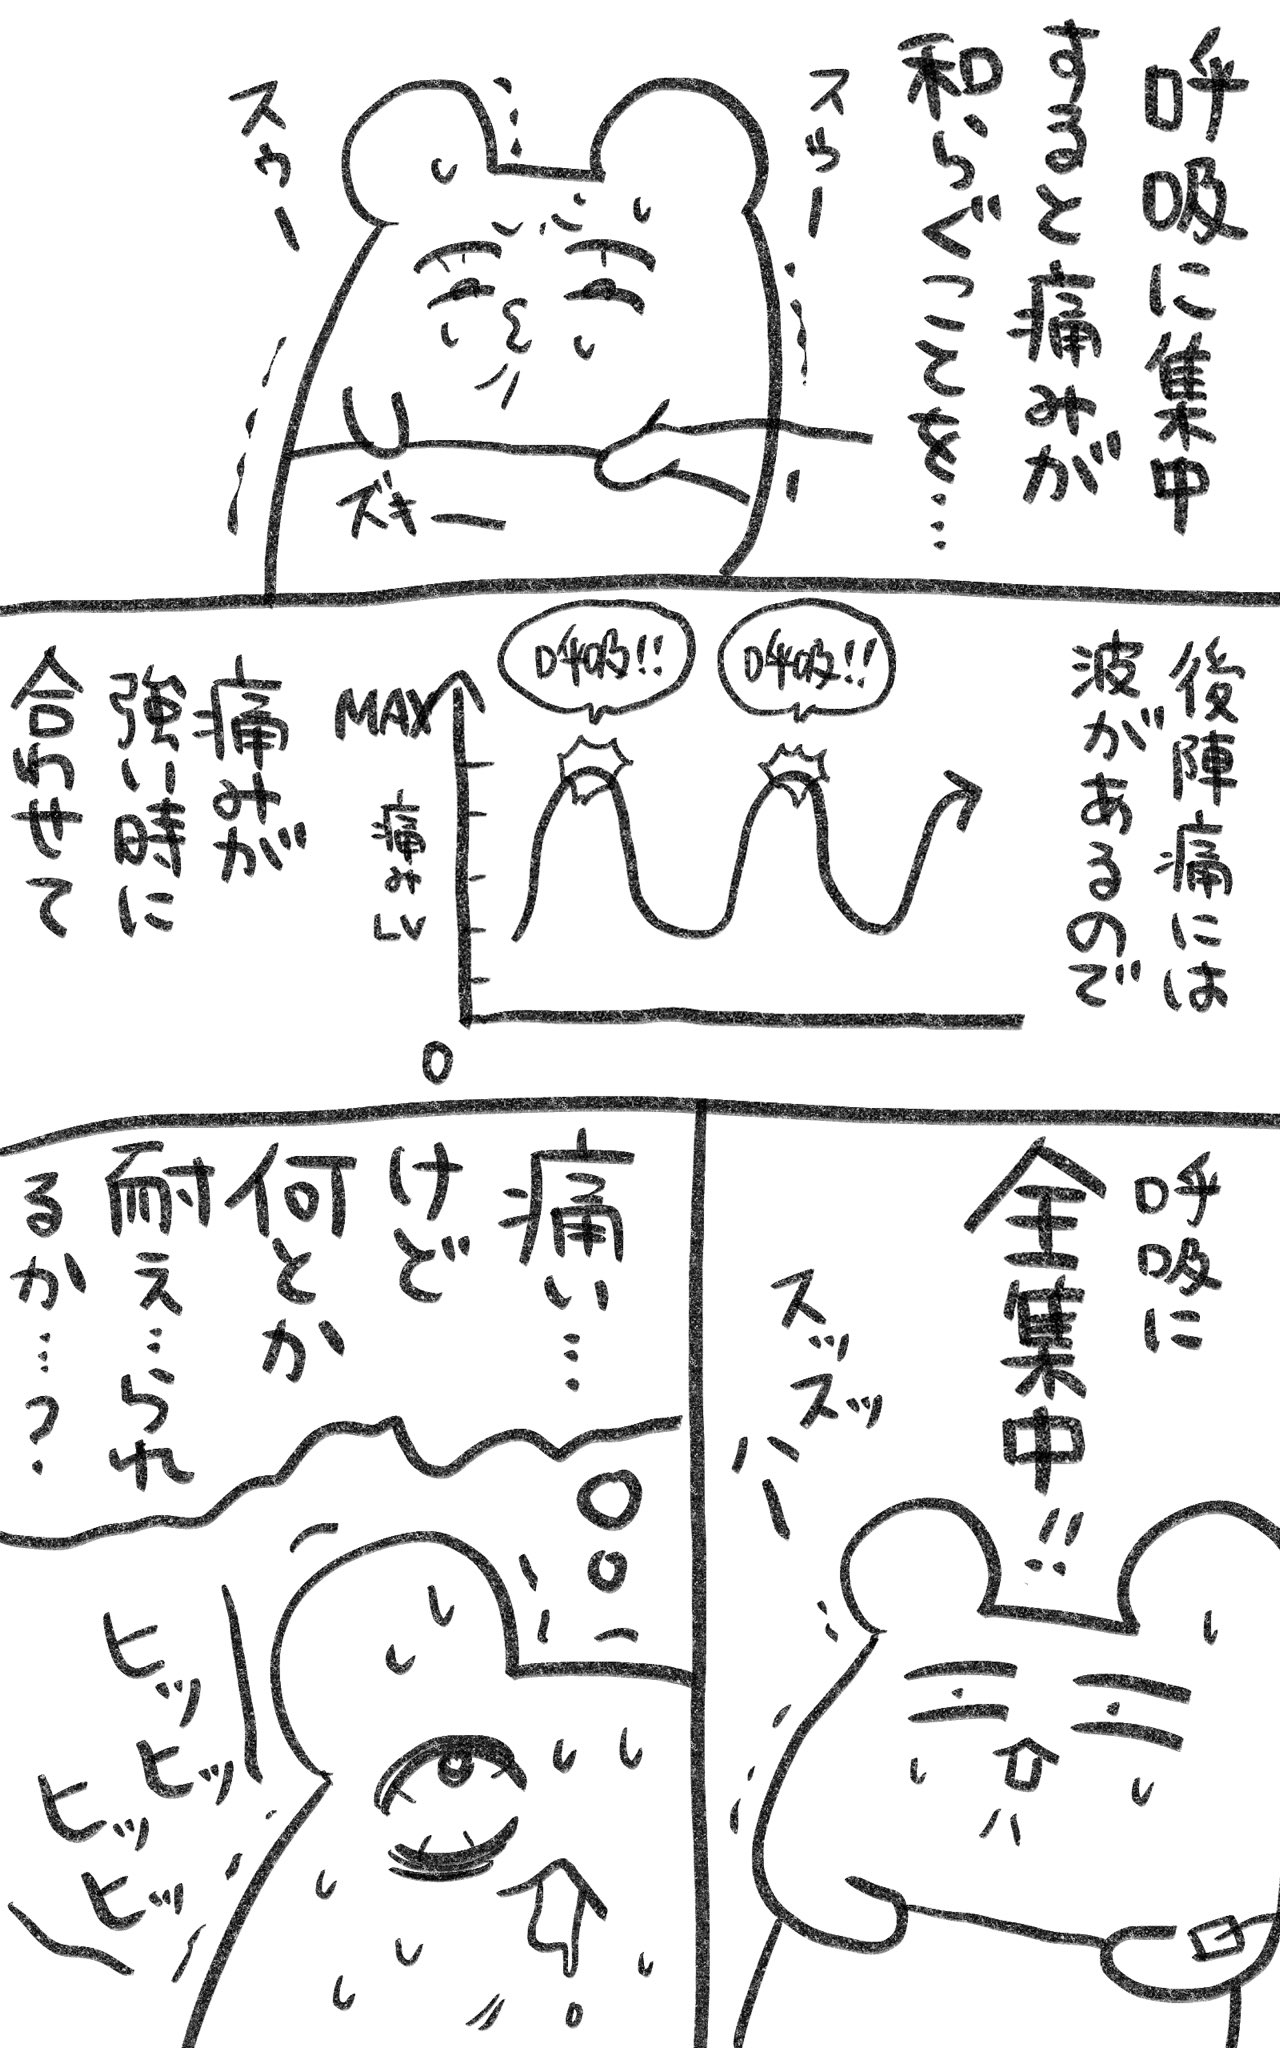 呼吸に集中
すると痛みが
和らぐってことを…
スゥー
スゥー
ズキー
後陣痛には
波があるので
呼吸!!
呼吸!!
MAX
痛みレベ
0
痛みが
強い時に
合わせて
呼吸に
全集中‼
スッ
スッ
ハー
痛い…
けど
何とか
耐え…られ
るか…?
ヒッ
ヒッ
ヒッ
ヒッ